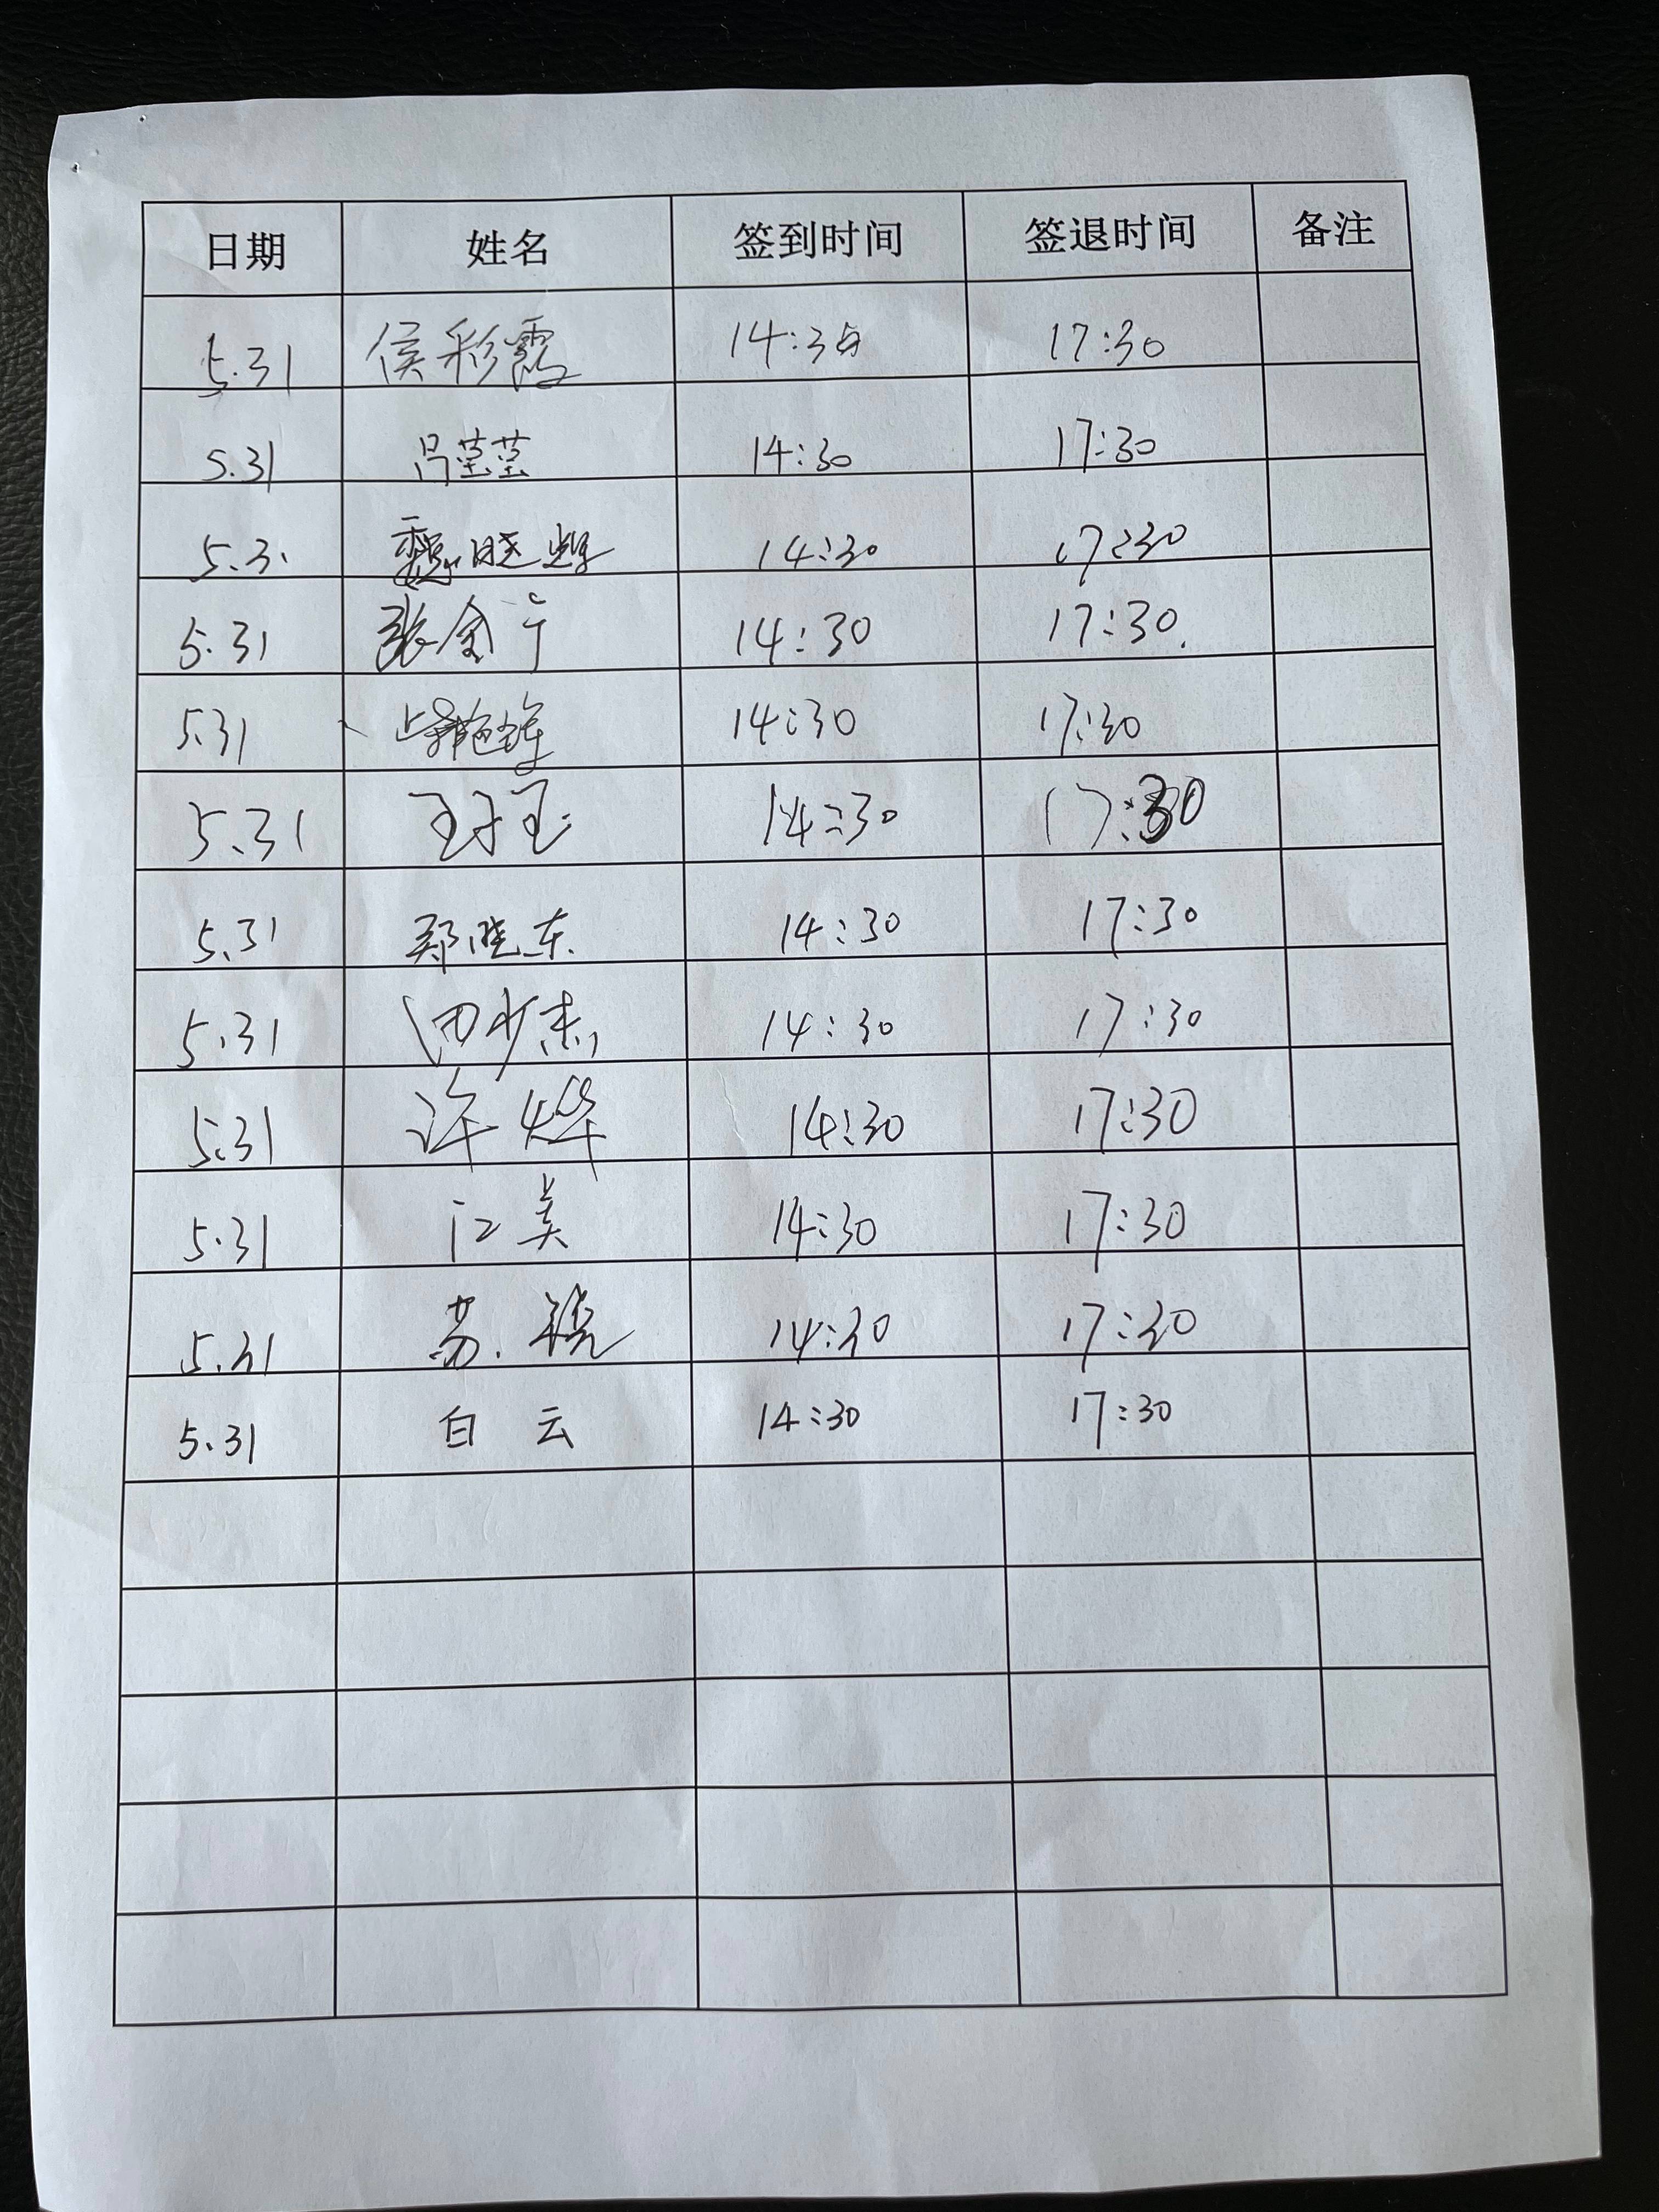 日期 姓名 签到时间 签退时间 备注
5.31 侯彩霞 14:30 17:30
5.31 吕莹莹 14:30 17:30
5.31 魏晓辉 14:30 17:30
5.31 张金宁 14:30 17:30.
5.31 14:30 17:30
5.31 14:30 17:30
5.31 郑晓东 14:30 17:30
5.31 田少杰 14:30 17:30
5.31 许烨 14:30 17:30
5.31 江美 14:30 17:30
5.31 苏锐 14:30 17:30
5.31 白云 14:30 17:30